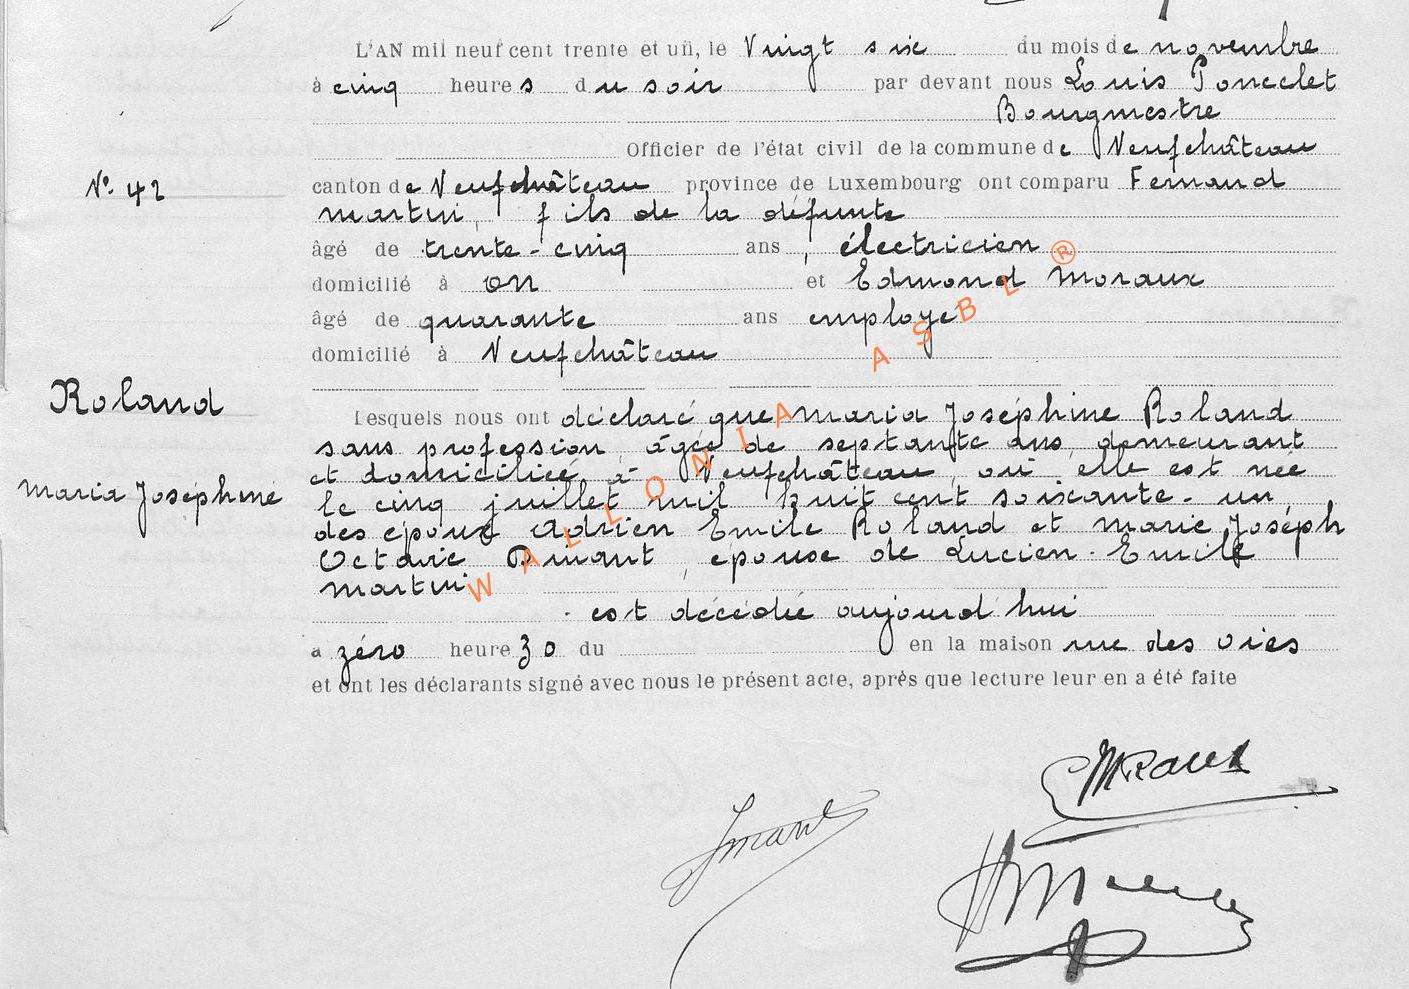 L'AN mil neuf cent trente et un, le Vingt six du mois de novembre
à cinq heures du soir par devant nous Louis Poncelet
Bourgmestre
Officier de l'état civil de la commune de Neufchâteau
N° 42
canton de Neufchâteau province de Luxembourg ont comparu Fernand
Martin, fils de la défunte
âgé de trente-cinq ans, électricien
domicilié à On et Edmond Moraux
âgé de quarante ans employé
domicilié à Neufchâteau
Roland
Lesquels nous ont déclaré que Maria Joséphine Roland
sans profession, âgée de septante ans, demeurant
et domiciliée à Neufchâteau, où elle est née
Maria Joséphine
le cinq juillet mil huit cent soixante-un
des époux Adrien Emile Roland et Marie Joséph
Octavie Dinant, épouse de Lucien-Emile
Martin
est décédée aujourd'hui
a zéro heure 30 du en la maison rue des Oies
et ont les déclarants signé avec nous le présent acte, après que lecture leur en a été faite
WALLONIA ASBL ®